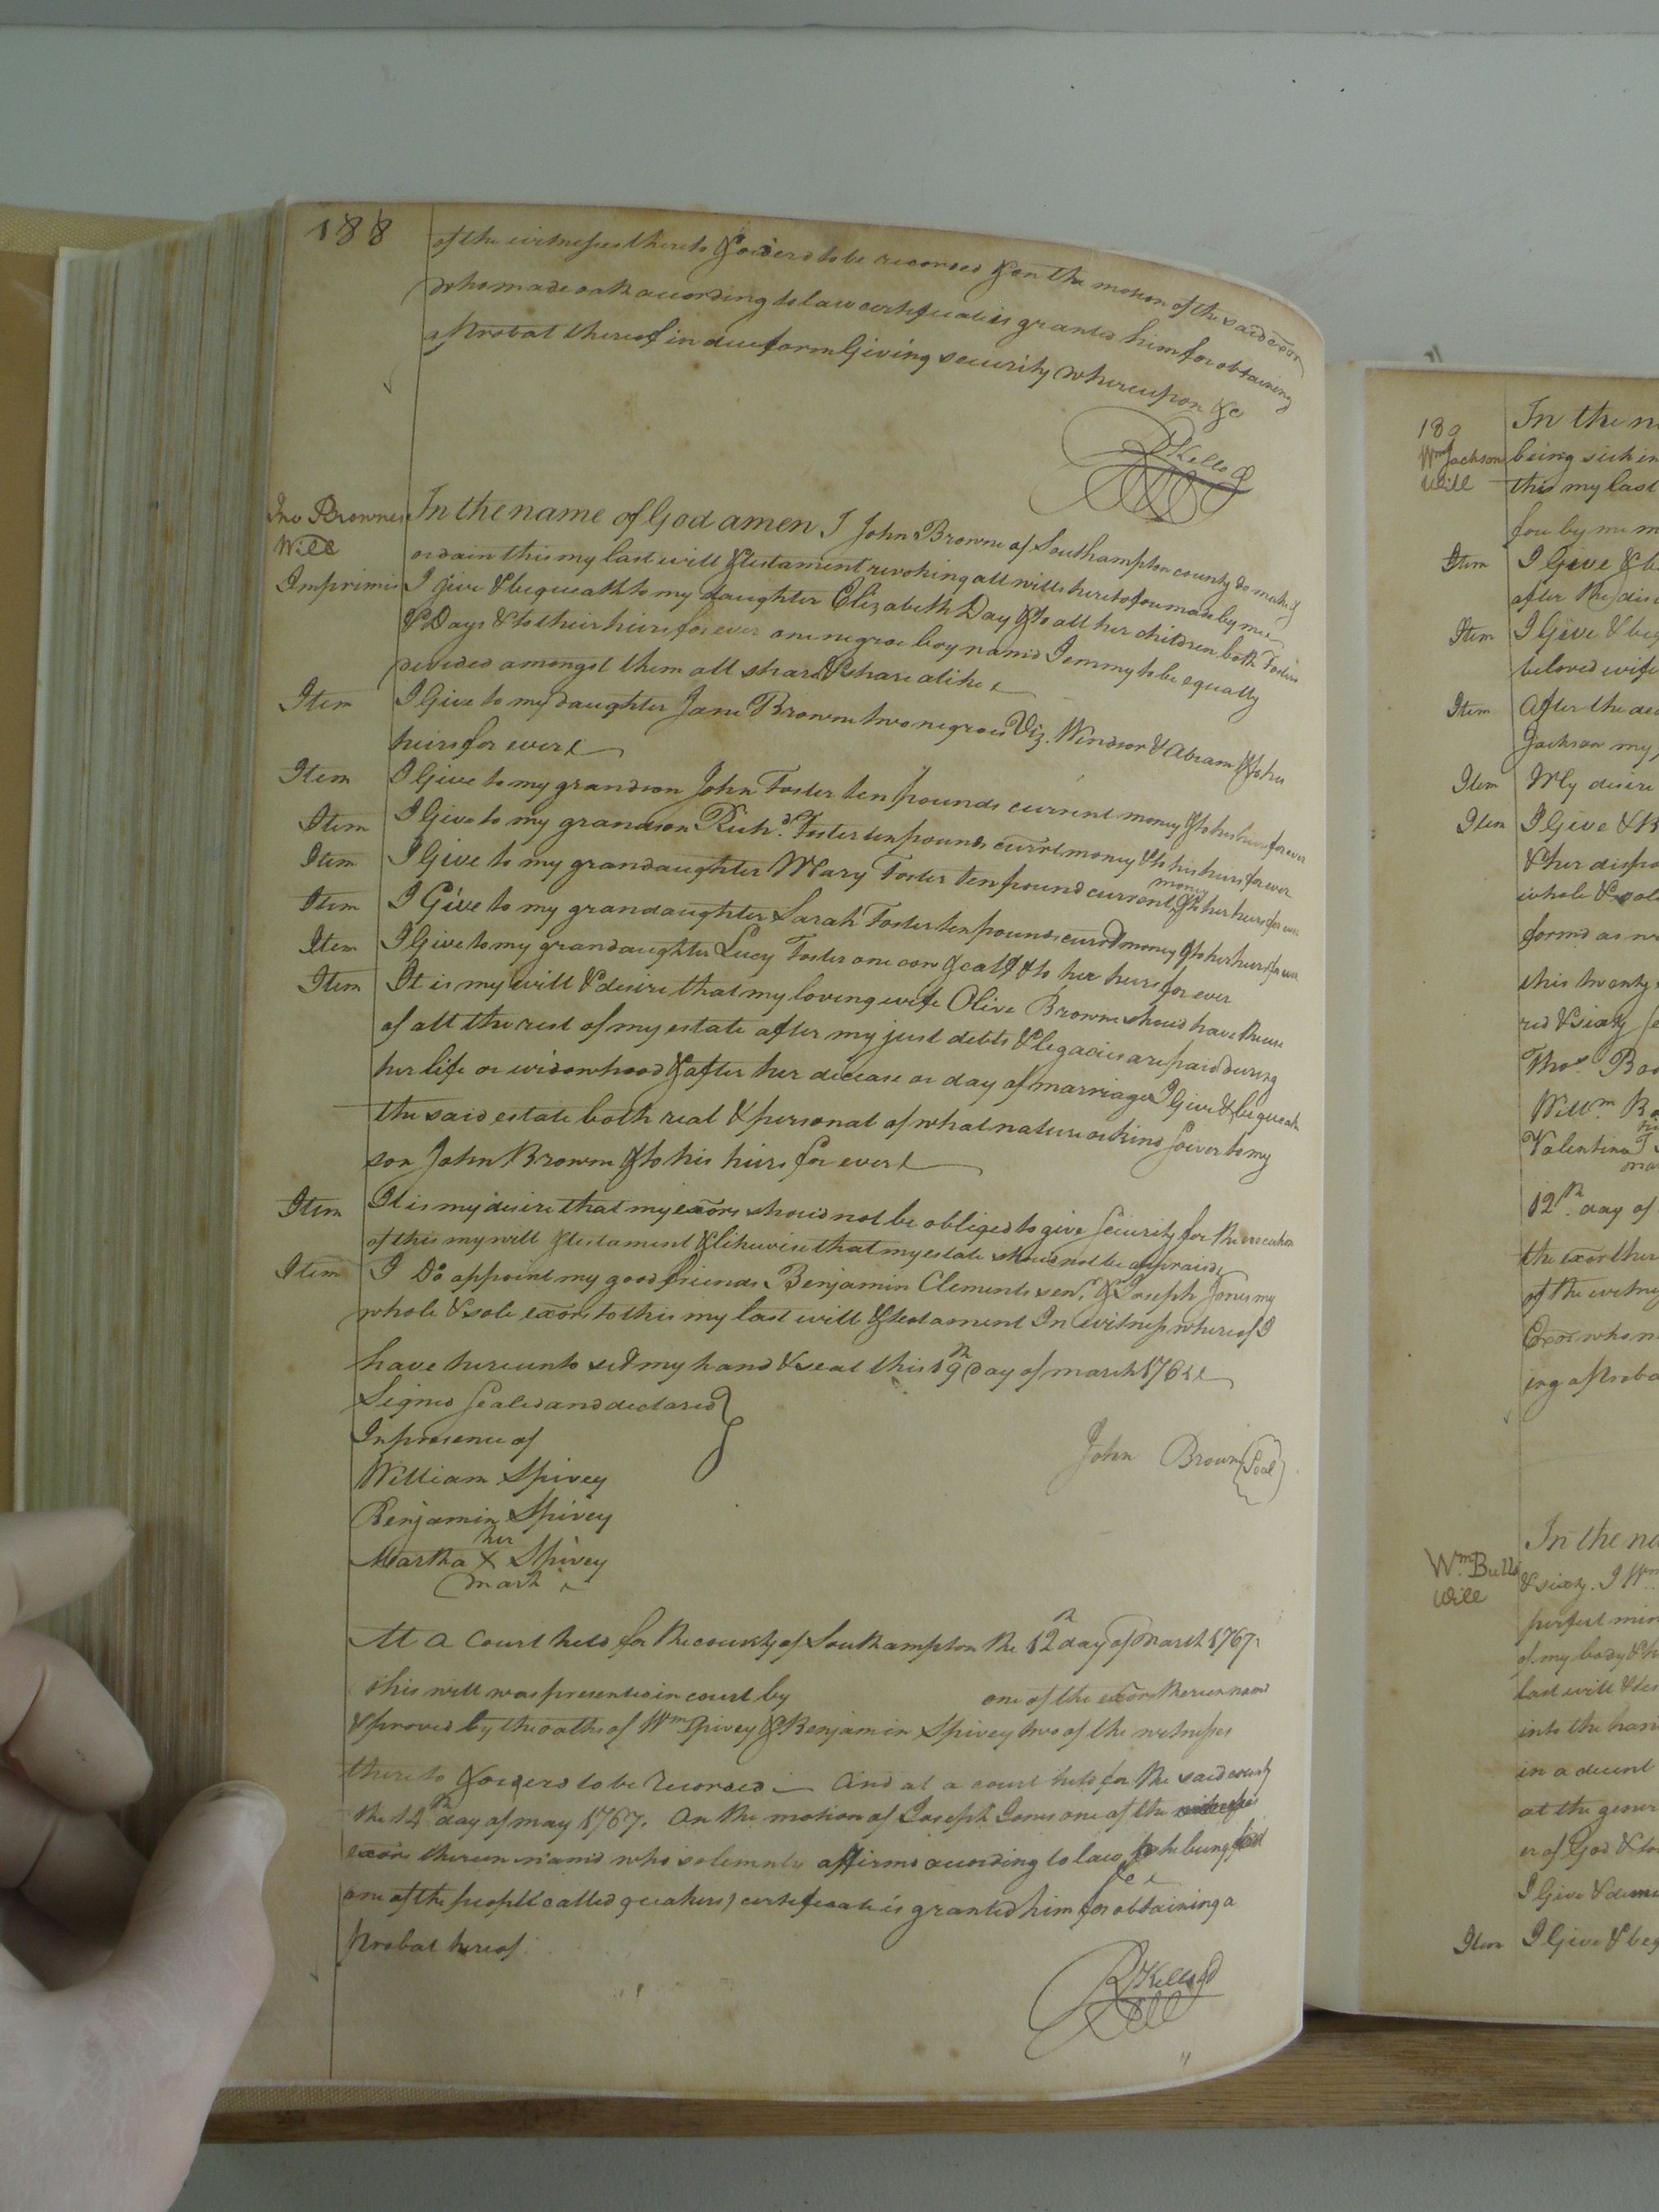 188
of the witnesses thereto & orderd to be recorded & on the motion of the said exor
who made oath according to law certificate is granted him for obtaining
a Probat thereof in due form Giving security whereupon &c
RKello
Jno Brownes
Will
In the name of God amen I John Browne of Southampton county do make &
ordain this my last will & testament revoking all wills heretofore made by me
Imprimis I give & bequeath to my daughter Elizabeth Day & to all her children both Fosters
& Days & to their heirs for ever one negroe boy named Jemmy to be equally
devided amongst them all share & share alike
Item I Give to my daughter Jane Browne two negroes Viz. Windsor & Abram & to her
heirs for ever
Item I Give to my grandson John Foster ten pounds current money & to his heirs for ever
Item I Give to my grandson Richd. Foster ten pounds currt money & to his heirs for ever
Item I Give to my grandaughter Mary Foster ten pound current money & to her heirs for ever
Item I Give to my grandaughter Sarah Foster ten pounds currt money & to her heirs for ever
Item I Give to my grandaughter Lucy Foster one cow & calf & to her heirs for ever
Item It is my will & desire that my loving wife Olive Browne should have the use
of all the rest of my estate after my just debts & legacies are paid during
her life or widowhood & after her decease or day of marriage I Give & bequeath
the said estate both real & personal of what nature or kind soever to my
son John Browne & to his heirs for ever
Item It is my desire that my exors should not be obliged to give security for the execution
of this my will & testament & likewise that my estate should not be appraised
Item I Do appoint my good friends Benjamin Clements senr. & Joseph Jones my
whole & sole exors to this my last will & testament In witness whereof I
have hereunto set my hand & seal this 19th day of march
Signed sealed and declared
In presence of
John Brown (Seal)
William Spivey
Benjamin Spivey
her
Martha X Spivey
mark
At a Court held for the county of Southampton the 12th day of March 1767
This will was presented in court by one of the exors therein named
& proved by the oaths of Wm Spivey & Benjamin Spivey two of the witnesses
thereto & orderd to be recorded And at a court held for the said county
the 14th day of may 1767. On the motion of Joseph Jones one of the
exors therein named who solemnly affirmd according to law he being
one of the people called quakers) certificate is granted him for obtaining a
Probat hereof
RKello
189
Wm Jackson
Will
In the
being sick in
this my last
fore by me m
Item I Give & b
after the
Item I Give & beg
beloved wife
Item After the de
Jackson my
Item My desire
Item I Give &
& her dispo
whole & sole
formd as w
this twenty
red & sixty
Thos. Boo
Willm.
Valentine
12th. day of
the exor ther
of the witne
Exor who m
ing a Proba
Wm. Bulls
Will
In the na
& sixty. I Wm
perfect min
of my body &
last will & tes
into the han
in a decent
at the gener
er of God &
I Give &
Item I Give & beq